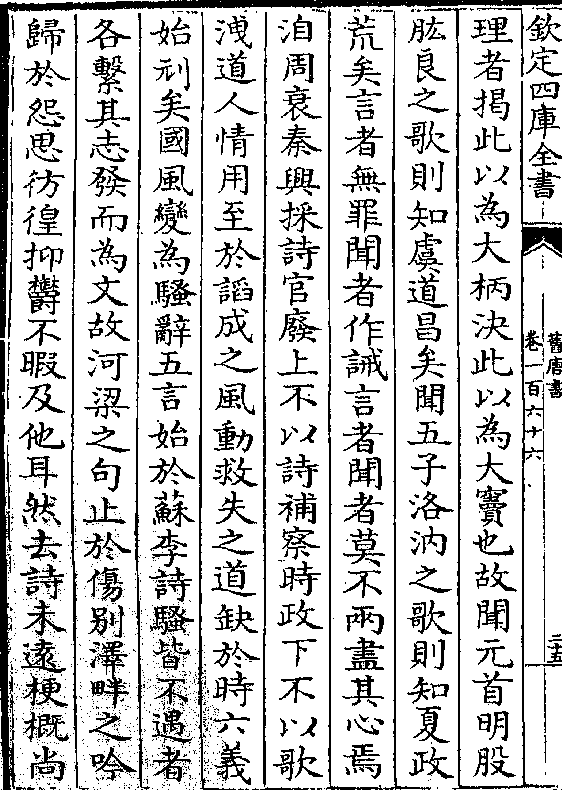 欽定四庫全書
舊唐書
卷一百六十六
三十五
理者揭此以為大柄決此以為大竇也故聞元首明股
肱良之歌則知虞道昌矣聞五子洛汭之歌則知夏政
荒矣言者無罪聞者作誡言者聞者莫不兩盡其心焉
洎周衰秦興採詩官廢上不以詩補察時政下不以歌
洩道人情用至於謟成之風動救失之道缺於時六義
始刓矣國風變為騷辭五言始於蘇李詩騷皆不遇者
各繫其志發而為文故河梁之句止於傷别澤畔之吟
歸於怨思彷徨抑鬱不暇及他耳然去詩未遠梗概尚